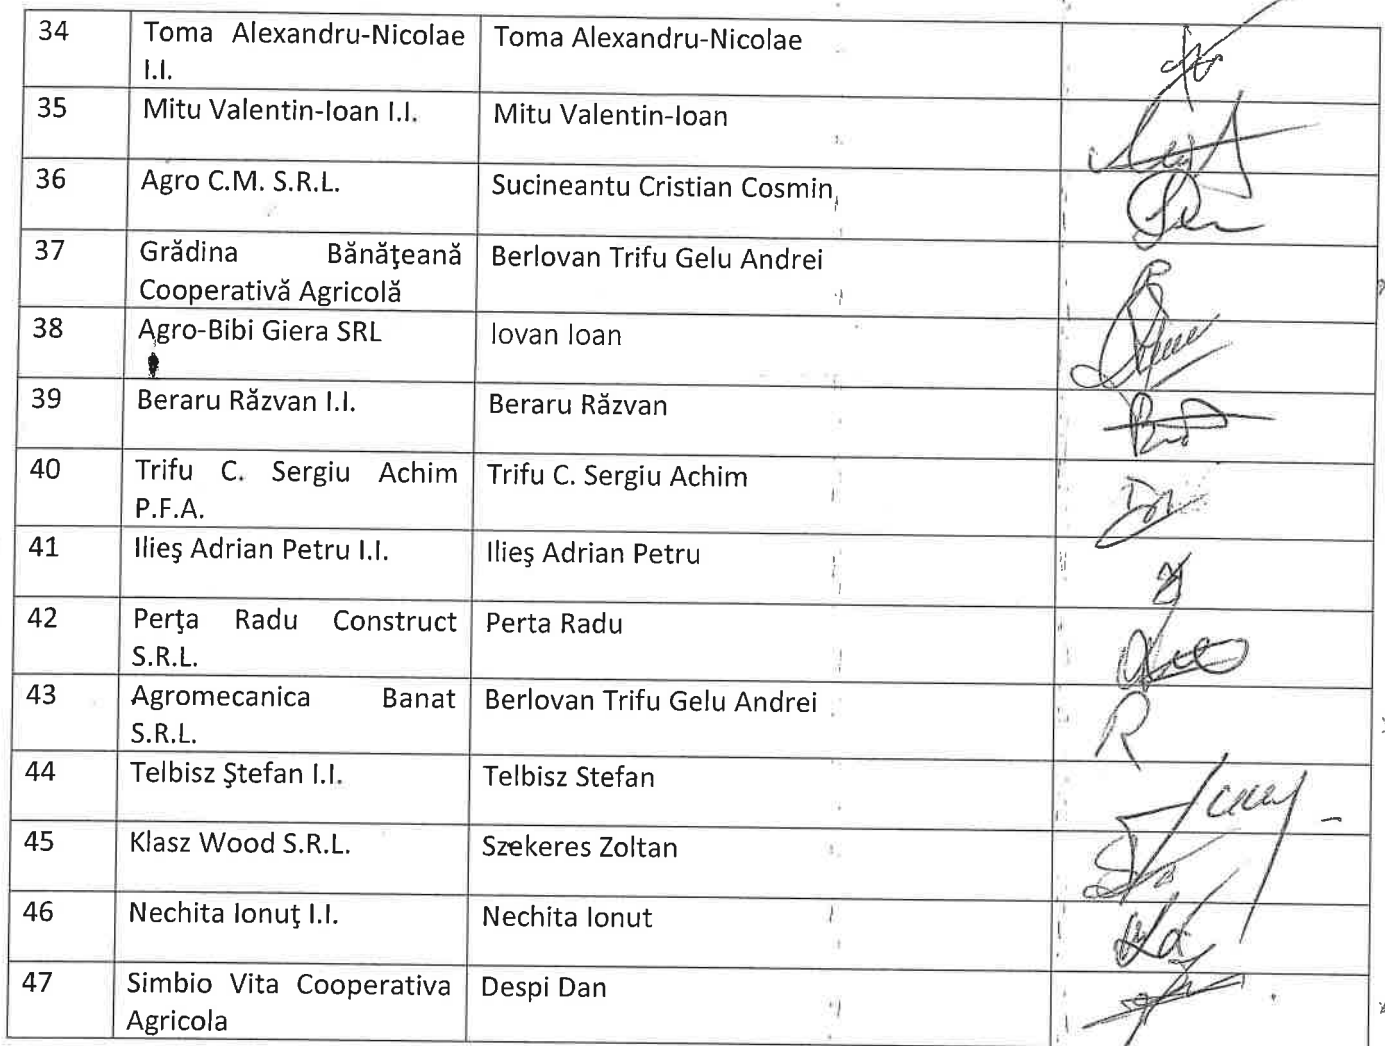 34 Toma Alexandru-Nicolae Toma Alexandru-Nicolae
I.I.
35 Mitu Valentin-Ioan I.I. Mitu Valentin-Ioan
36 Agro C.M. S.R.L. Sucineantu Cristian Cosmin
37 Grădina Bănăţeană Berlovan Trifu Gelu Andrei
Cooperativă Agricolă
38 Agro-Bibi Giera SRL Iovan Ioan
39 Beraru Răzvan I.I. Beraru Răzvan
40 Trifu C. Sergiu Achim Trifu C. Sergiu Achim
P.F.A.
41 Ilieş Adrian Petru I.I. Ilieş Adrian Petru
42 Perţa Radu Construct Perta Radu
S.R.L.
43 Agromecanica Banat Berlovan Trifu Gelu Andrei
S.R.L.
44 Telbisz Ştefan I.I. Telbisz Stefan
45 Klasz Wood S.R.L. Szekeres Zoltan
46 Nechita Ionuţ I.I. Nechita Ionut
47 Simbio Vita Cooperativa Despi Dan
Agricola